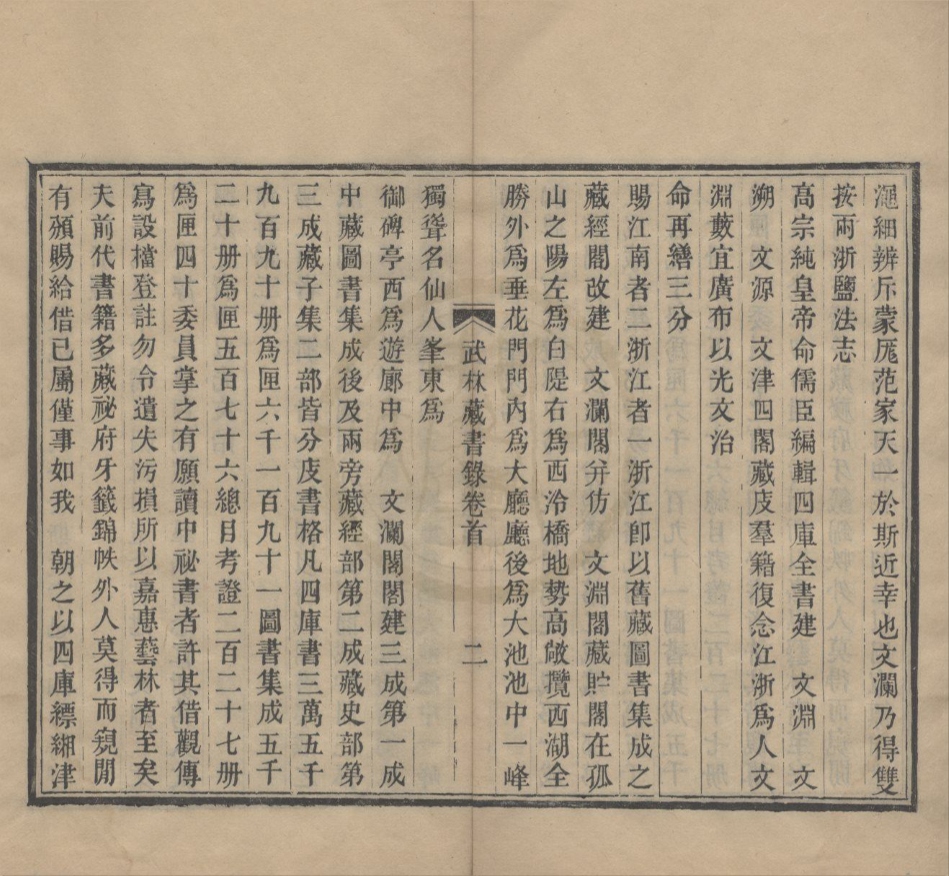 澠細辨斥蒙厖范家天一於斯近幸也文瀾乃得雙
按兩浙鹽法志
高宗純皇帝命儒臣編輯四庫全書建　文淵　文
溯　文源　文津四閣藏庋羣籍復念江浙爲人文
淵藪宜廣布以光文治
命再繕三分
賜江南者二浙江者一浙江卽以舊藏圖書集成之
藏經閣改建　文瀾閣幷仿　文淵閣藏貯閣在孤
山之陽左爲白隄右爲西泠橋地勢高敞攬西湖全
勝外爲垂花門門內爲大廳廳後爲大池池中一峰
武林藏書錄卷首　二
獨聳名仙人峯東爲
御碑亭西爲遊廊中爲　文瀾閣閣建三成第一成
中藏圖書集成後及兩旁藏經部第二成藏史部第
三成藏子集二部皆分庋書格凡四庫書三萬五千
九百九十册爲匣六千一百九十一圖書集成五千
二十册爲匣五百七十六總目考證二百二十七册
爲匣四十委員掌之有願讀中祕書者許其借觀傳
寫設檔登註勿令遺失污損所以嘉惠藝林者至矣
夫前代書籍多藏祕府牙籤錦帙外人莫得而窺閒
有頒賜給借已屬僅事如我　朝之以四庫縹緗津